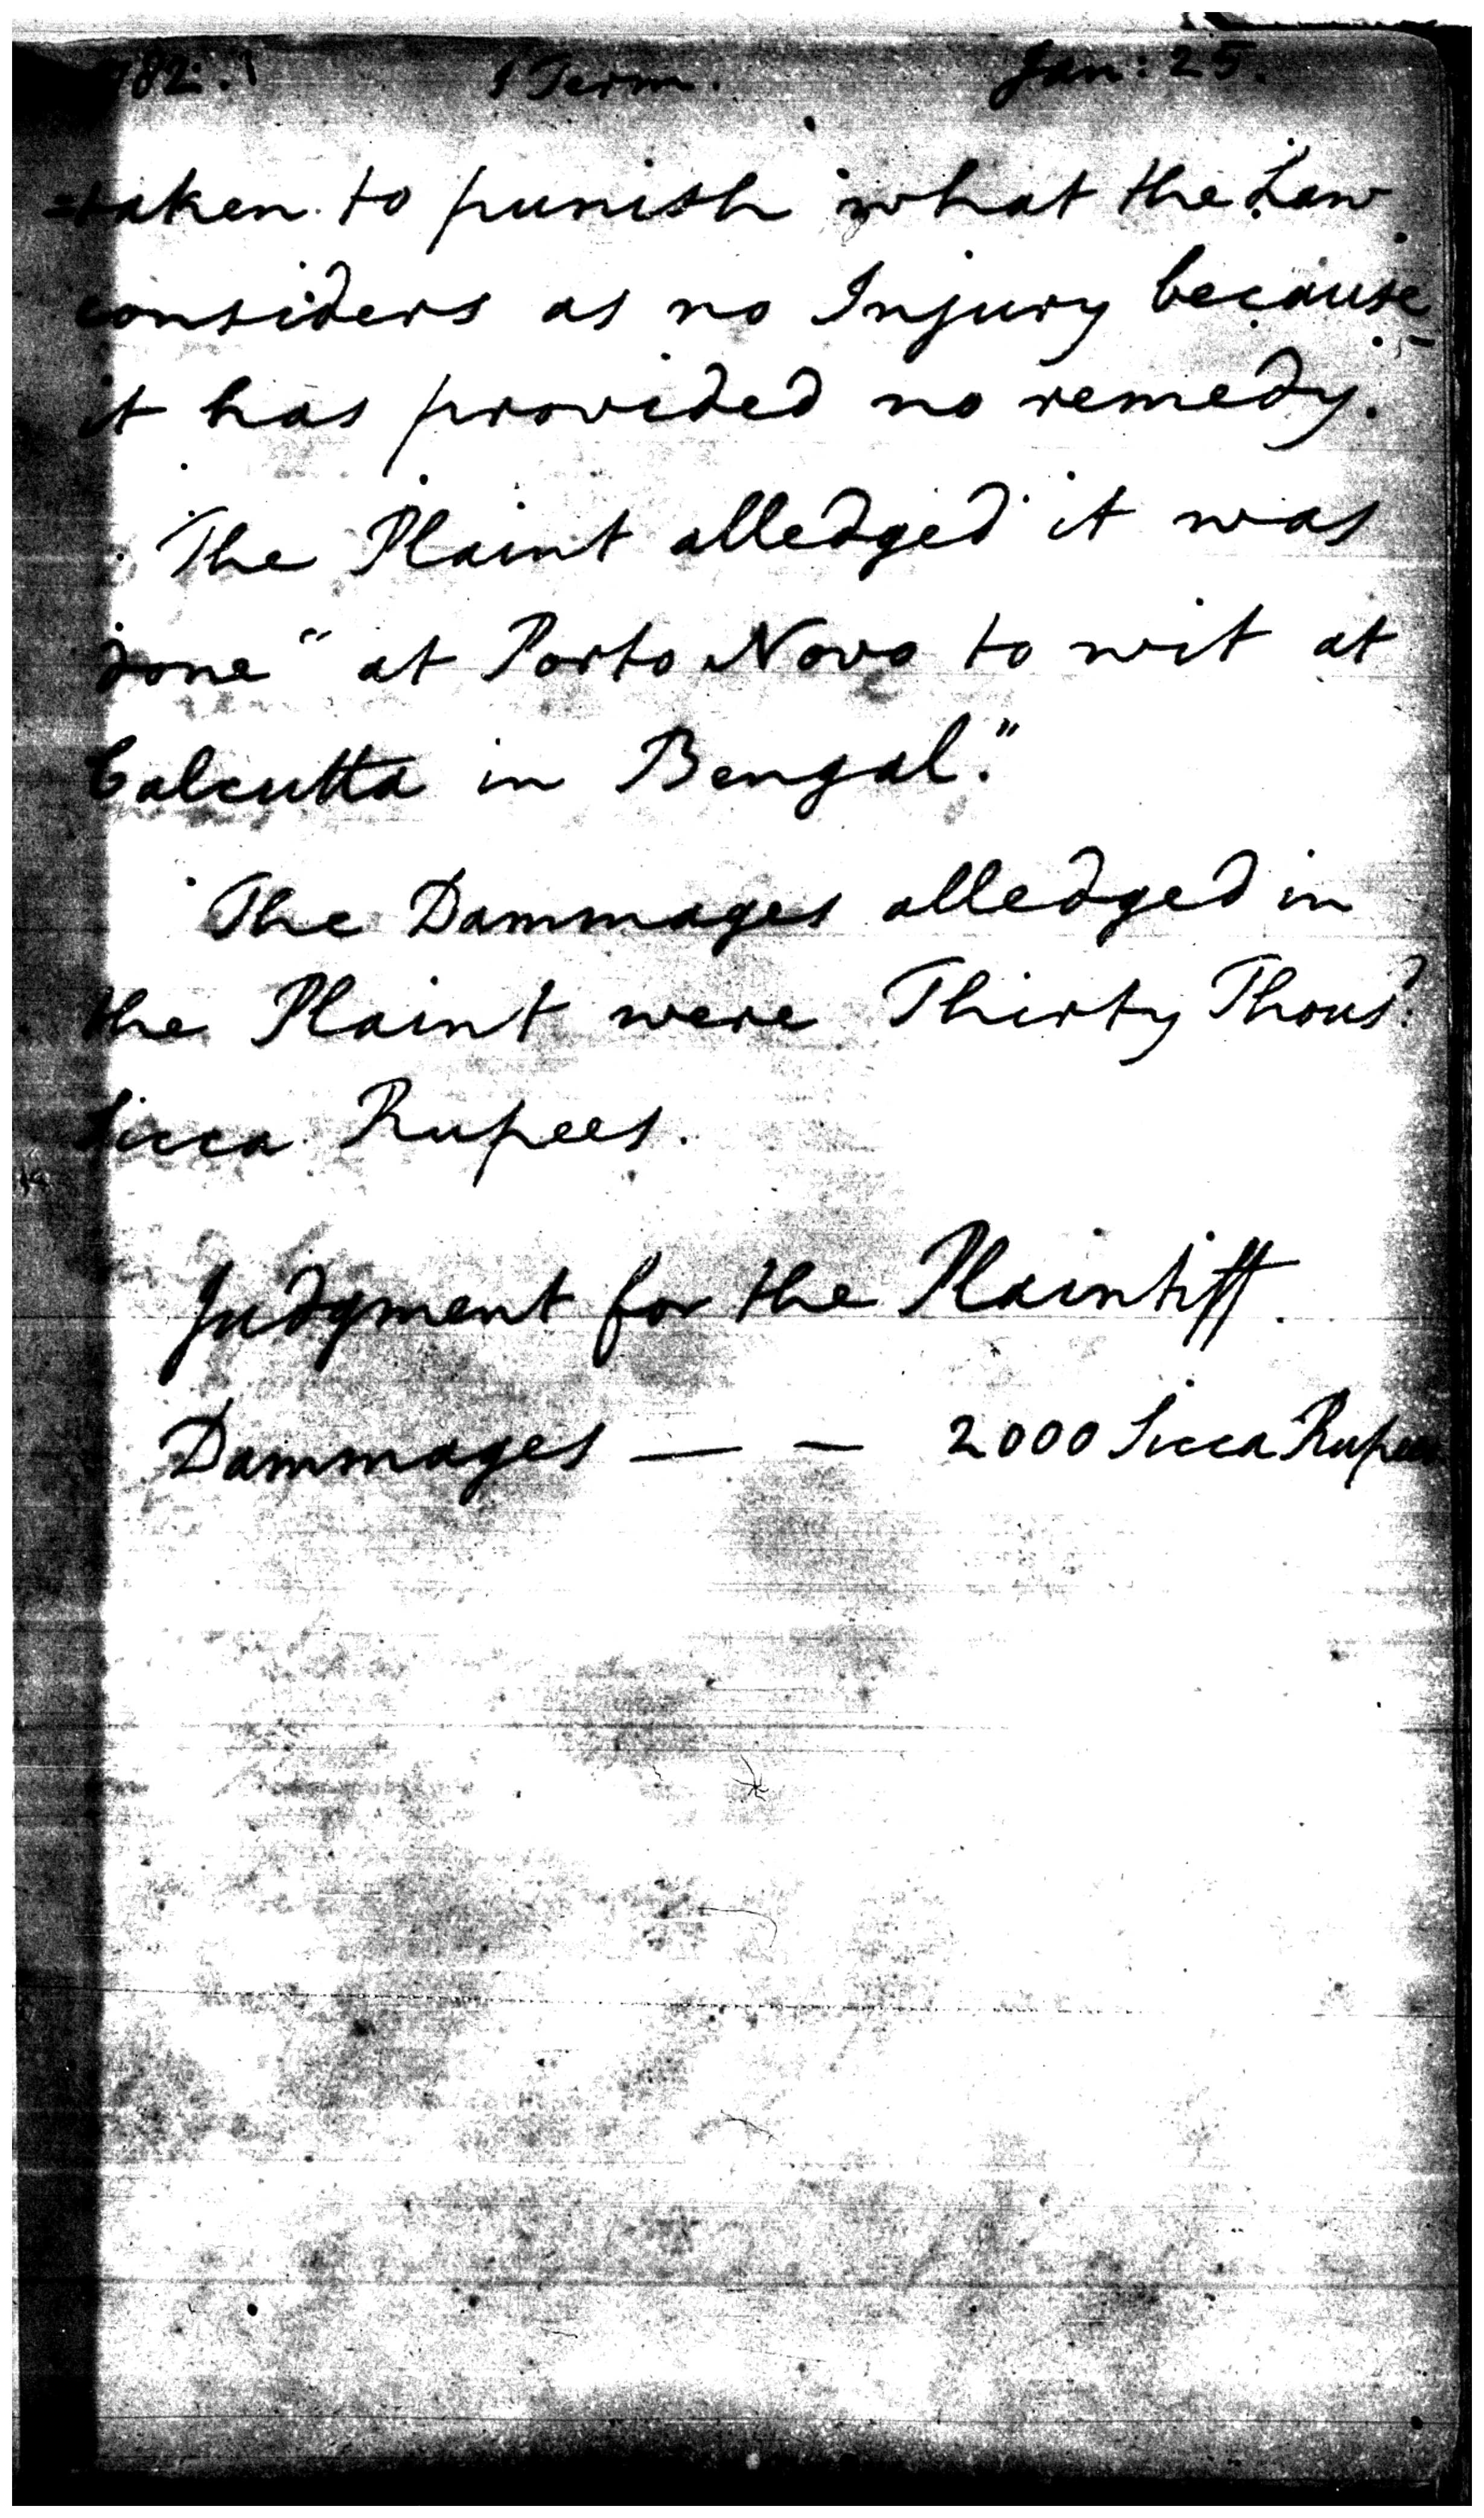 1782. 1 Term. Jan: 25.
=taken to punish what the Law
considers as no Injury because
it has provided no remedy.
The Plaint alledged it was
done "at Porto Novo to wit at
Calcutta in Bengal."
The Dammages alledged in
the Plaint were Thirty Thousd.
Sicca Rupees.
Judgment for the Plaintiff.
Dammages — — 2000 Sicca Rupees